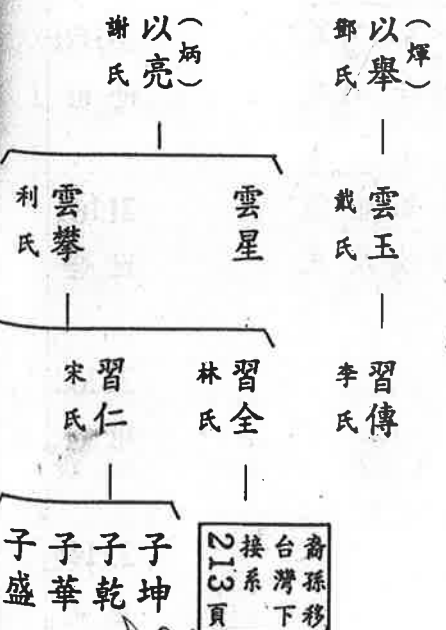 (煇)
以舉
鄧氏
雲玉
戴氏
習傳
李氏
(炳)
以亮
謝氏
雲星
雲攀
利氏
習全
林氏
裔孫移
台灣下
接系
213頁
習仁
宋氏
子坤
子乾
子華
子盛